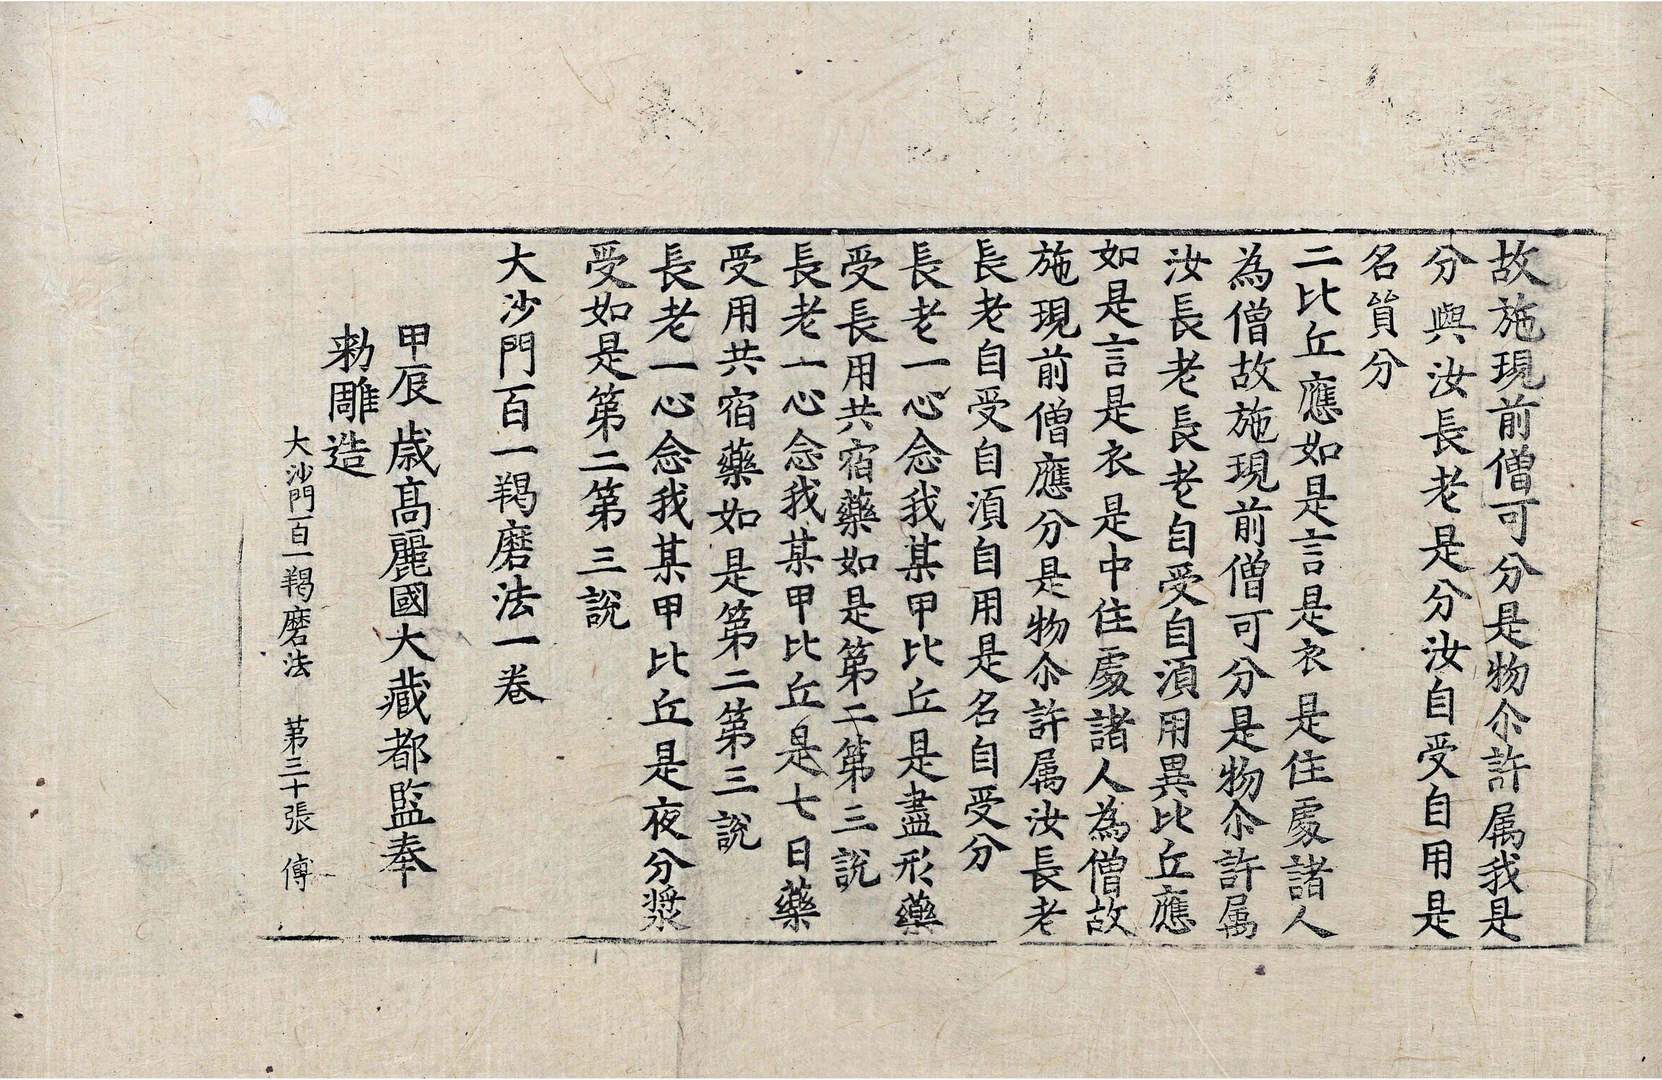 故施現前僧可分是物尒許属我是
分與汝長老是分汝自受自用是
名質分
二比丘應如是言是衣是住處諸人
為僧故施現前僧可分是物尒許属
汝長老長老自受自湏用異比丘應
如是言是衣是中住處諸人為僧故
施現前僧應分是物尒許属汝長老
長老自受自湏自用是名自受分
長老一心念我某甲比丘是盡形藥
受長用共宿藥如是第二第三說
長老一心念我某甲比丘是七日藥
受用共宿藥如是第二第三說
長老一心念我某甲比丘是夜分漿
受如是第二第三說
大沙門百一羯磨法一卷
甲辰歲高麗國大藏都監奉
勑雕造
大沙門百一羯磨法　第三十張　傅